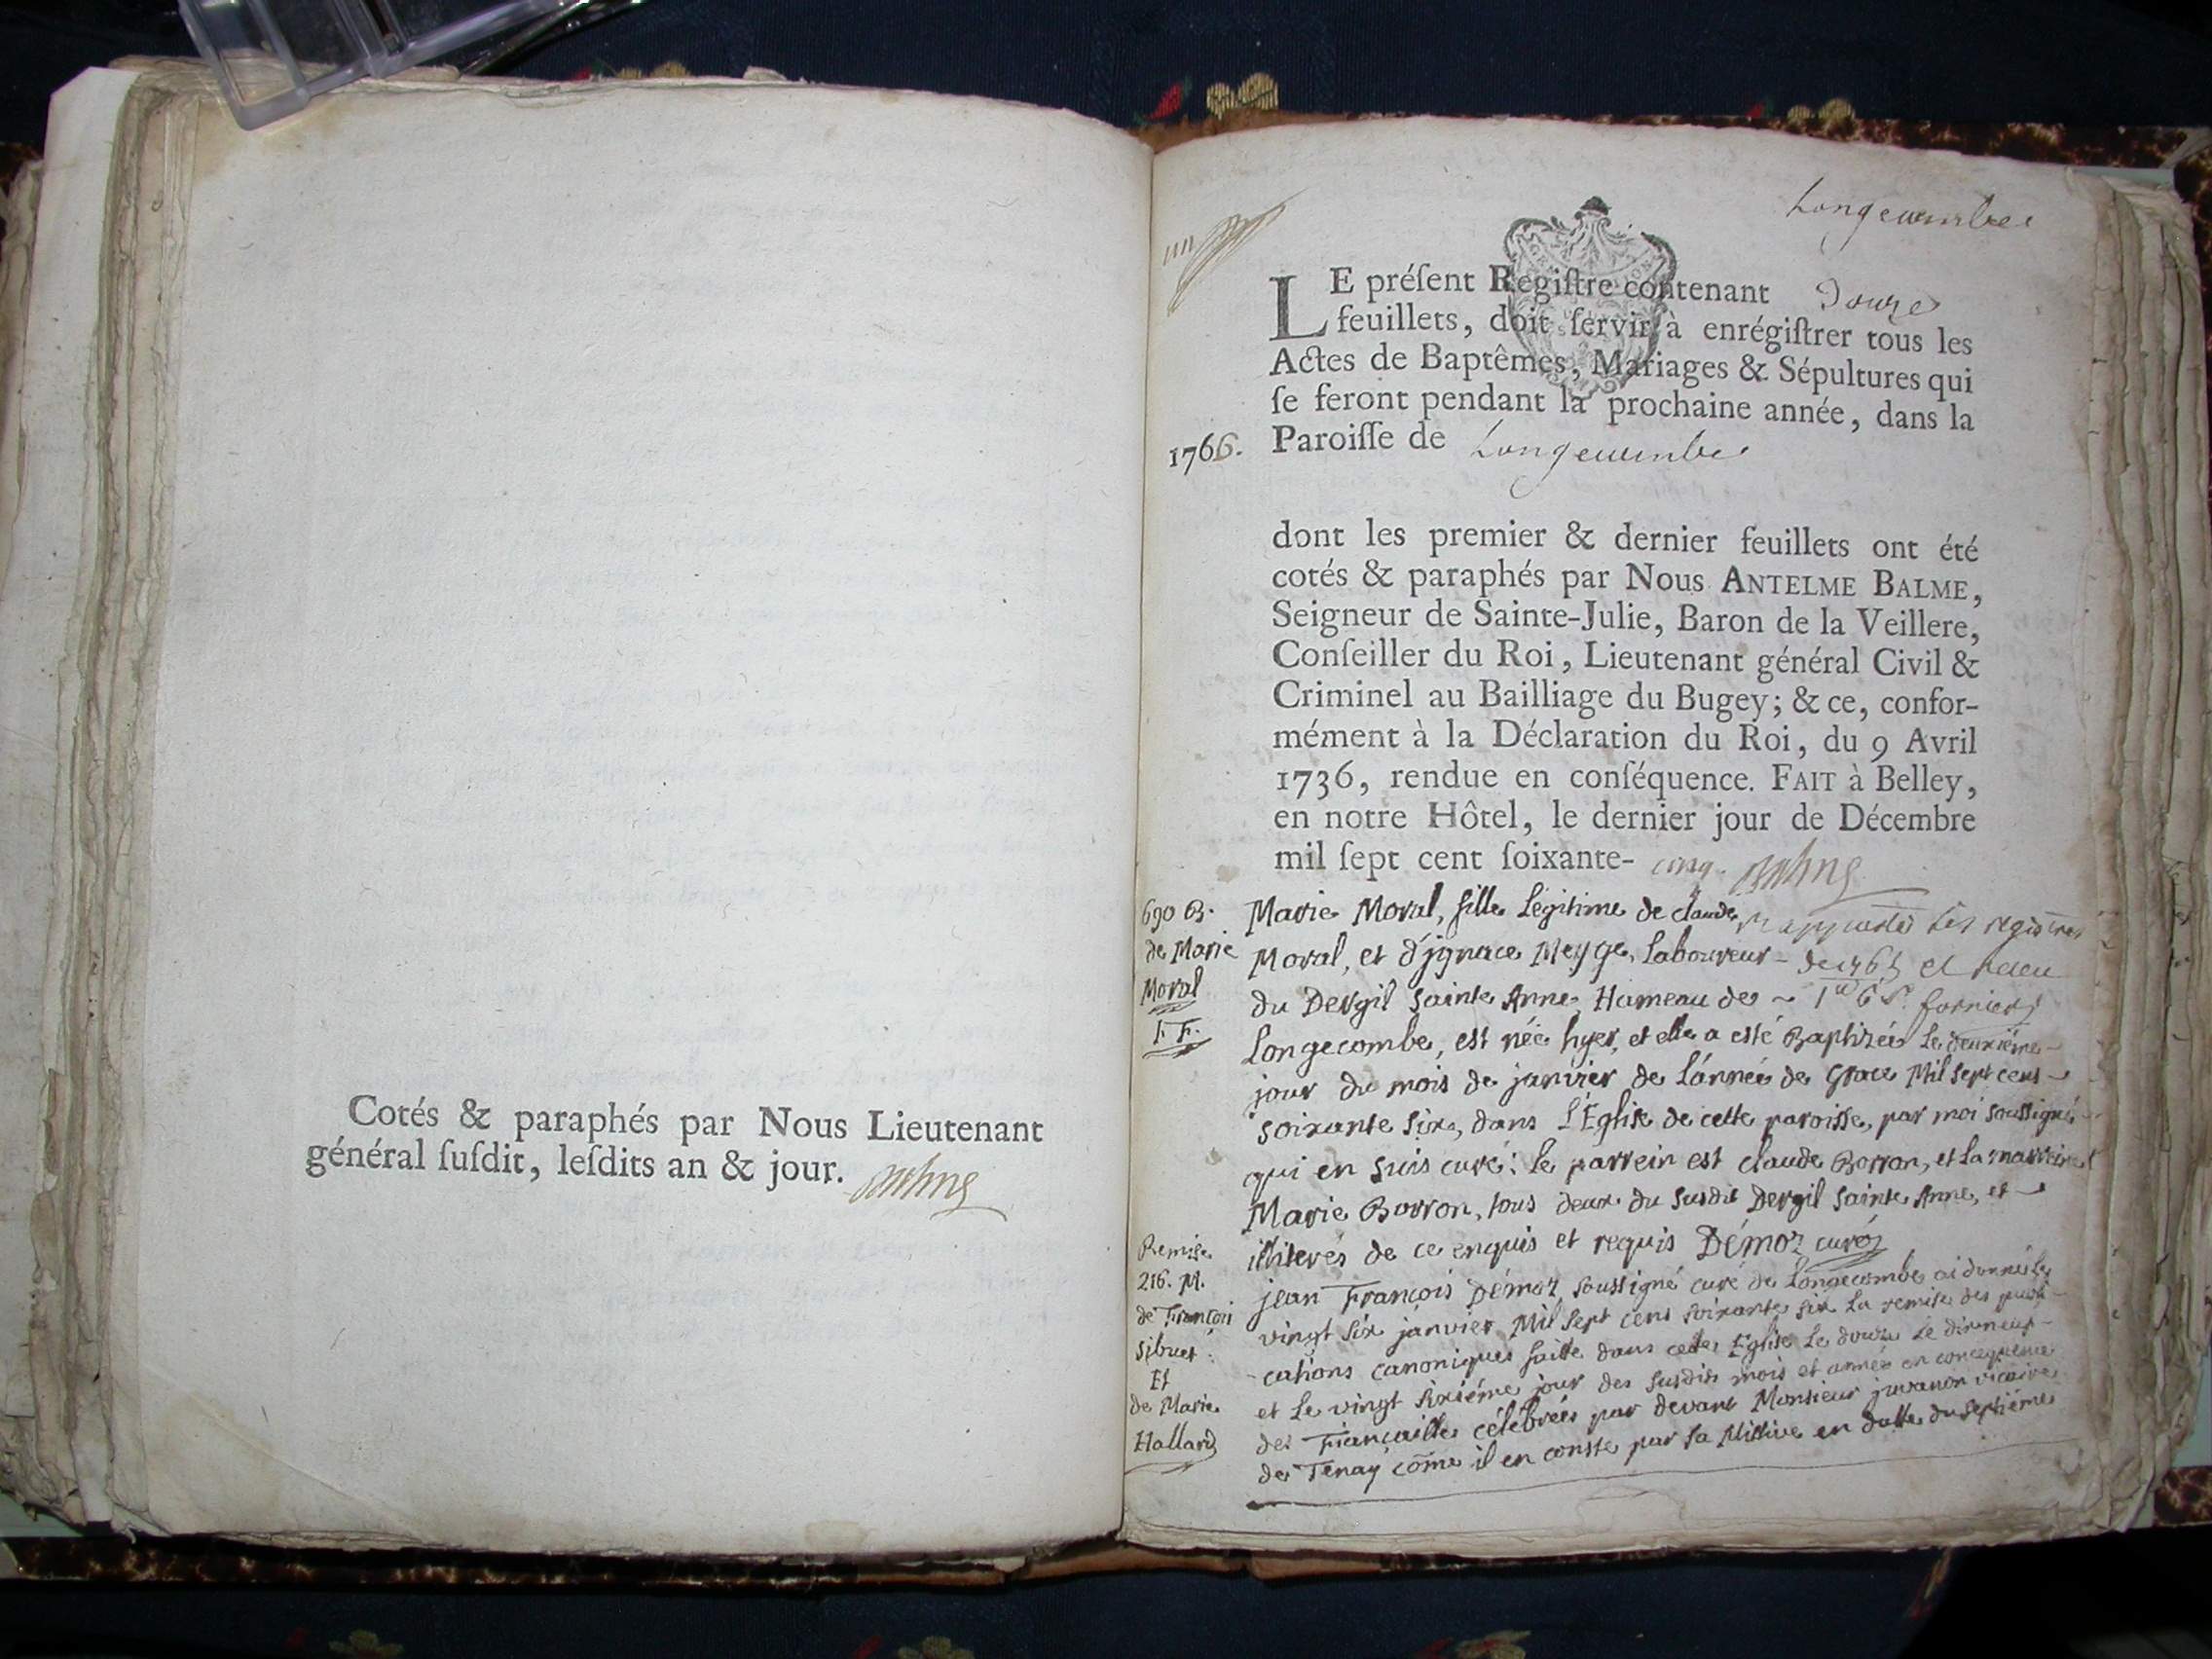 Cotés & paraphés par Nous Lieutenant
général ſuſdit, leſdits an & jour.
Longecombe
LE préſent Regiſtre contenant Douze
feuillets, doit ſervir à enrégiſtrer tous les
Actes de Baptêmes, Mariages & Sépultures qui
ſe feront pendant la prochaine année, dans la
1766. Paroiſſe de Longecombe
dont les premier & dernier feuillets ont été
cotés & paraphés par Nous ANTELME BALME,
Seigneur de Sainte-Julie, Baron de la Veillere,
Conſeiller du Roi, Lieutenant général Civil &
Criminel au Bailliage du Bugey; & ce, confor-
mément à la Déclaration du Roi, du 9 Avril
1736, rendue en conſéquence. FAIT à Belley,
en notre Hôtel, le dernier jour de Décembre
mil ſept cent ſoixante- cinq.
690 B.
de Marie
Moral
F F.
Marie Moral, fille Légitime de claude
Moral, et d'jgnace Meyge, Laboureur
du Dergil Sainte Anne, Hameau de
Longecombe, est née hyer, et elle a esté Baptizée Le deuxiéme
jour du mois de janvier de L'année de Grace Mil sept cens
soixante six, dans L'Eglise de cette paroisse, par moi soussigné
qui en suis curé: Le parrein est claude Borron, et La marreine
Marie Borron, tous deux du susdit Dergil Sainte Anne, et
illiterés de ce enquis et requis Démoz curé
Remise
216. M.
de François
Sibuet
Et
de Marie
Hallard
jean François Démoz soussigné curé de Longecombe ai donné Le
vingt six janvier Mil Sept cens soixante six La remise des publi-
cations canoniques faitte dans cette Eglise Le douze Le dixneuf
et Le vingt sixiéme jour des susdits mois et année en concequence
des Fiançailles célébrées par devant Monsieur juvanon vicaire
de Tenay côme il en conste par sa Missive en datte du septiéme